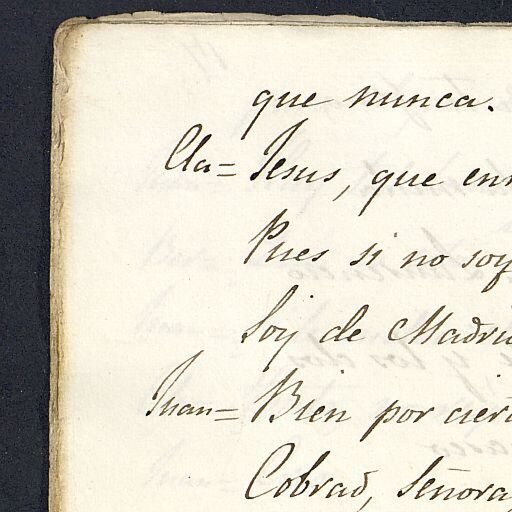 que nunca.
Cla= Jesus, que
Pues si no soy
Soy de
Juan= Bien por
Cobrad, Señora,